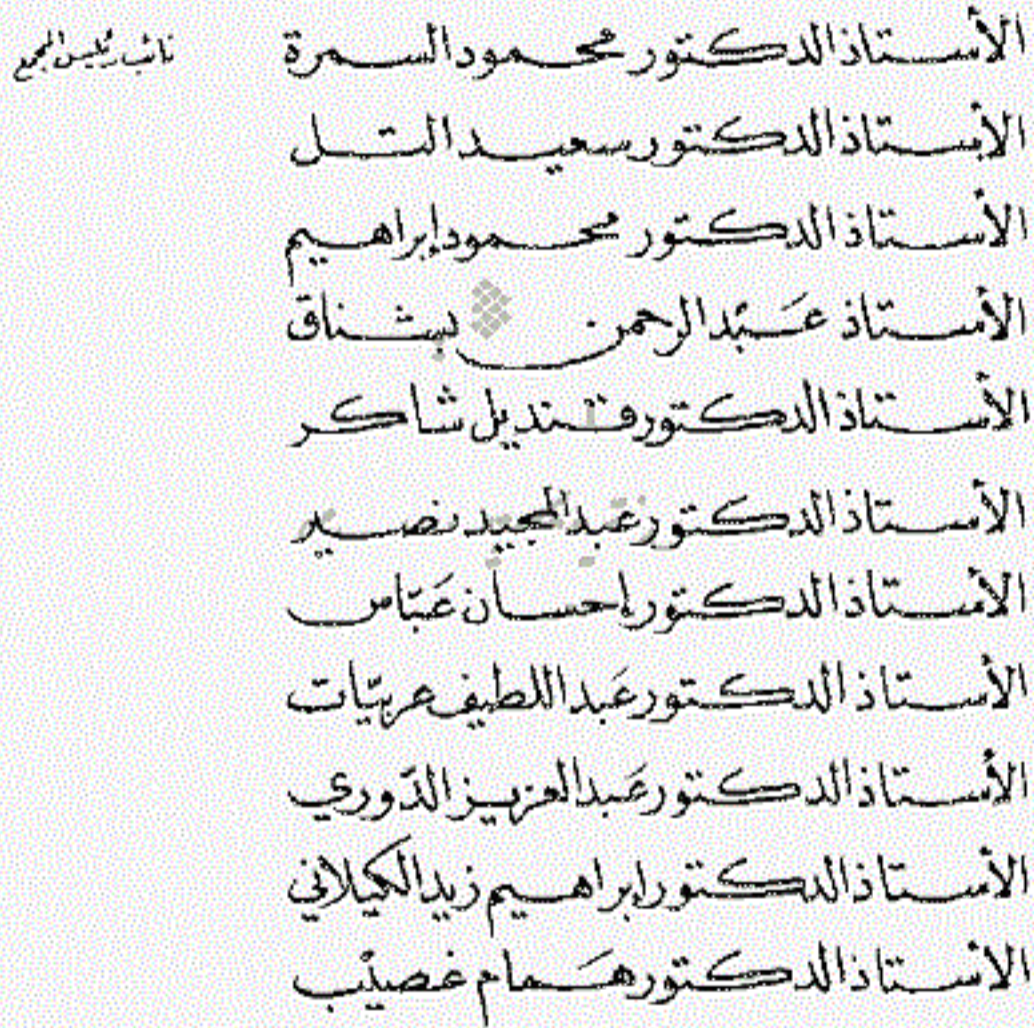 الأستاذ الدكتور محمود السمرة نائب رئيس المجمع
الأستاذ الدكتور سعيد التل
الأستاذ الدكتور محمود إبراهيم
الأستاذ عَبْد الرحمن بشناق
الأستاذ الدكتور قنديل شاكر
الأستاذ الدكتور عَبد المجيد نصير
الأستاذ الدكتور إحسان عَبّاس
الأستاذ الدكتور عَبد اللطيف عربيّات
الأستاذ الدكتور عَبد العزيز الدّوري
الأستاذ الدكتور إبراهيم زيد الكيلاني
الأستاذ الدكتور هَمام غصيْب